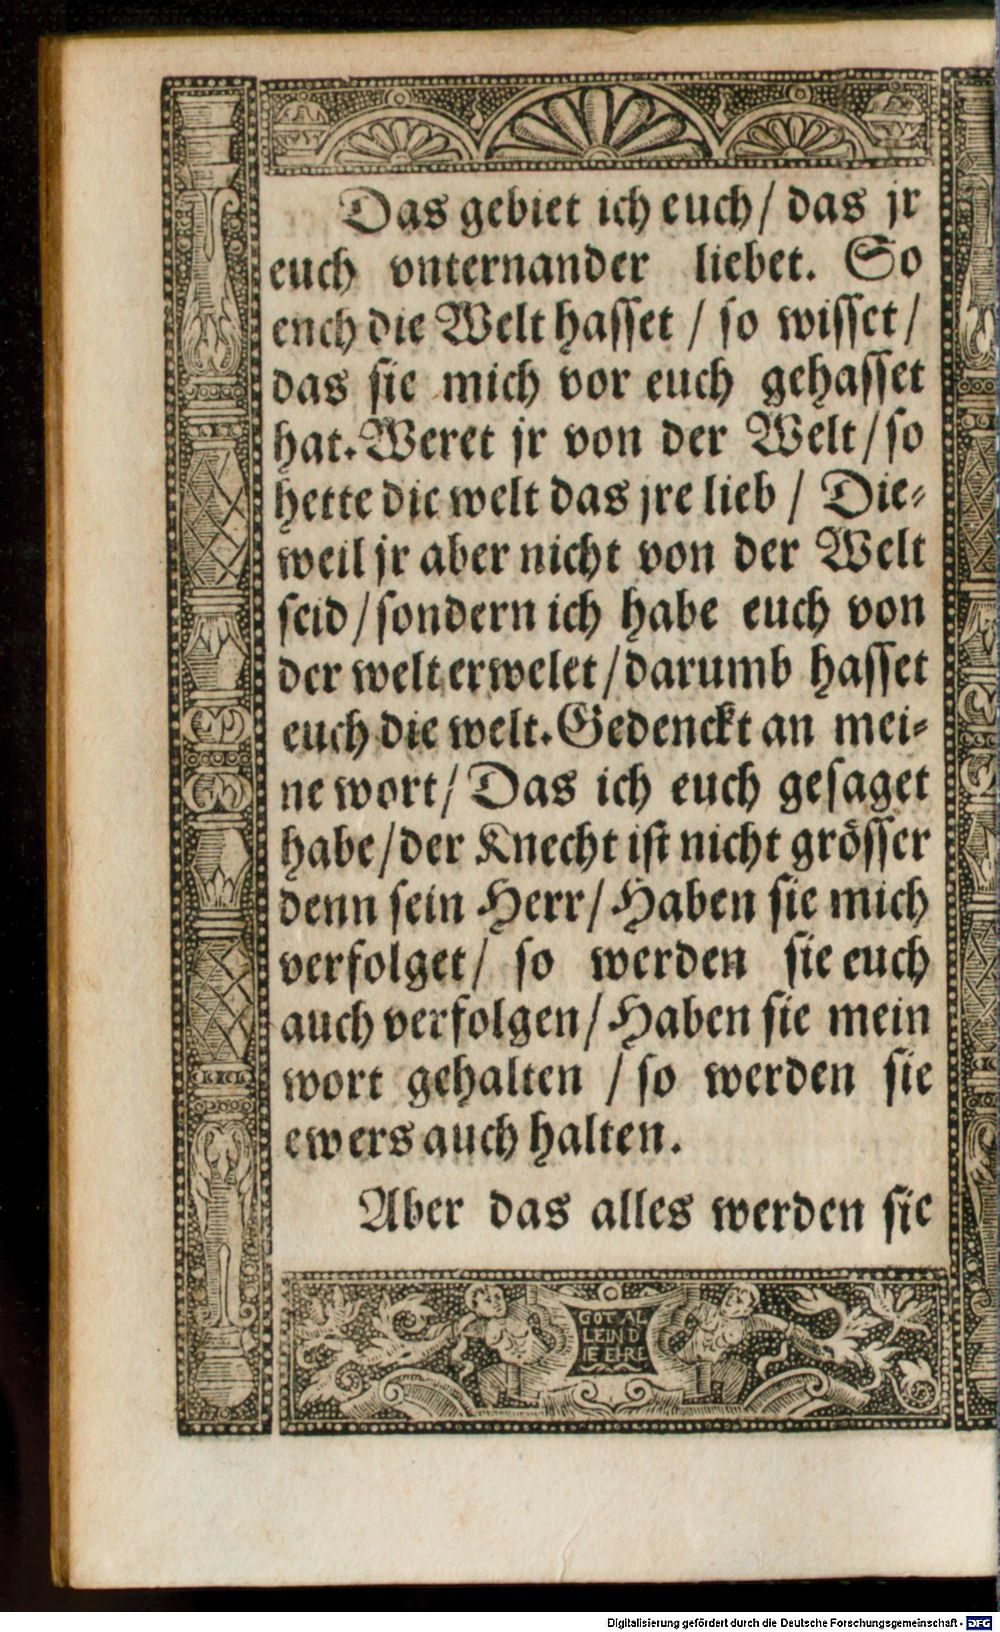 Das gebiet ich euch/ das jr
euch vnternander liebet. So
ench die Welt hasset / so wisset/
das sie mich vor euch gehasset
hat. Weret jr von der Welt/ so
hette die welt das jre lieb / Die-
weil jr aber nicht von der Welt
seid/ sondern ich habe euch von
der welt erwelet/ darumb hasset
euch die welt. Gedenckt an mei-
ne wort/ Das ich euch gesaget
habe/ der Knecht ist nicht grösser
denn sein Herr/ Haben sie mich
verfolget/ so werden sie euch
auch verfolgen/ Haben sie mein
wort gehalten / so werden sie
ewers auch halten.
Aber das alles werden sie
GOT AL
LEIN D
IE EHRE
Digitalisierung gefördert durch die Deutsche Forschungsgemeinschaft - DFG